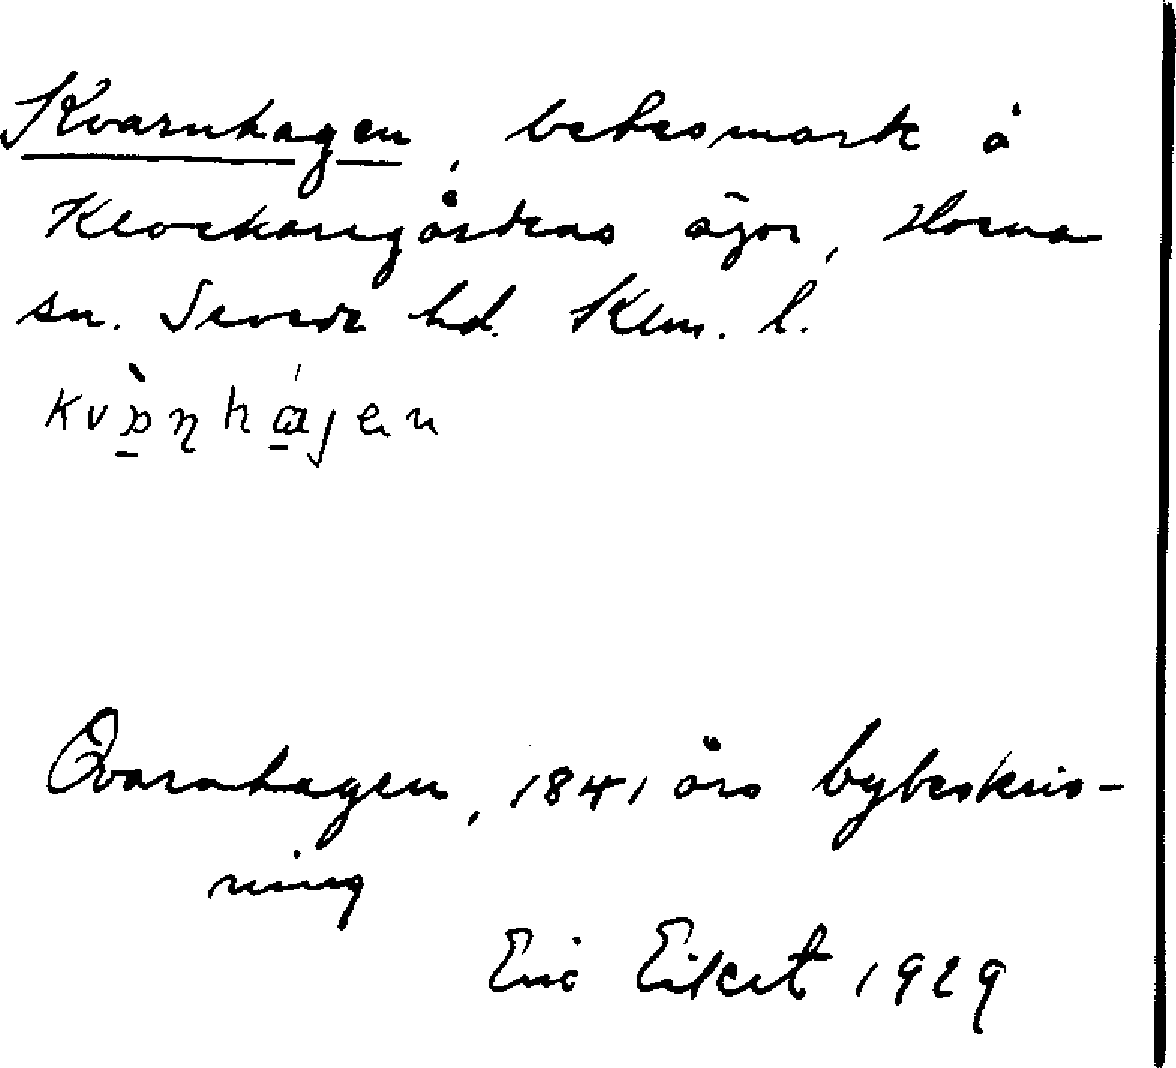 Kvarnhagen, betesmark å
Klockaregårdens ägor, Horna
sn. Sevede hd. Klm. l.
kvɒ̀ṉhájen
Qvarnhagen, 1841 års bybeskriv-
ning
Eric 1929